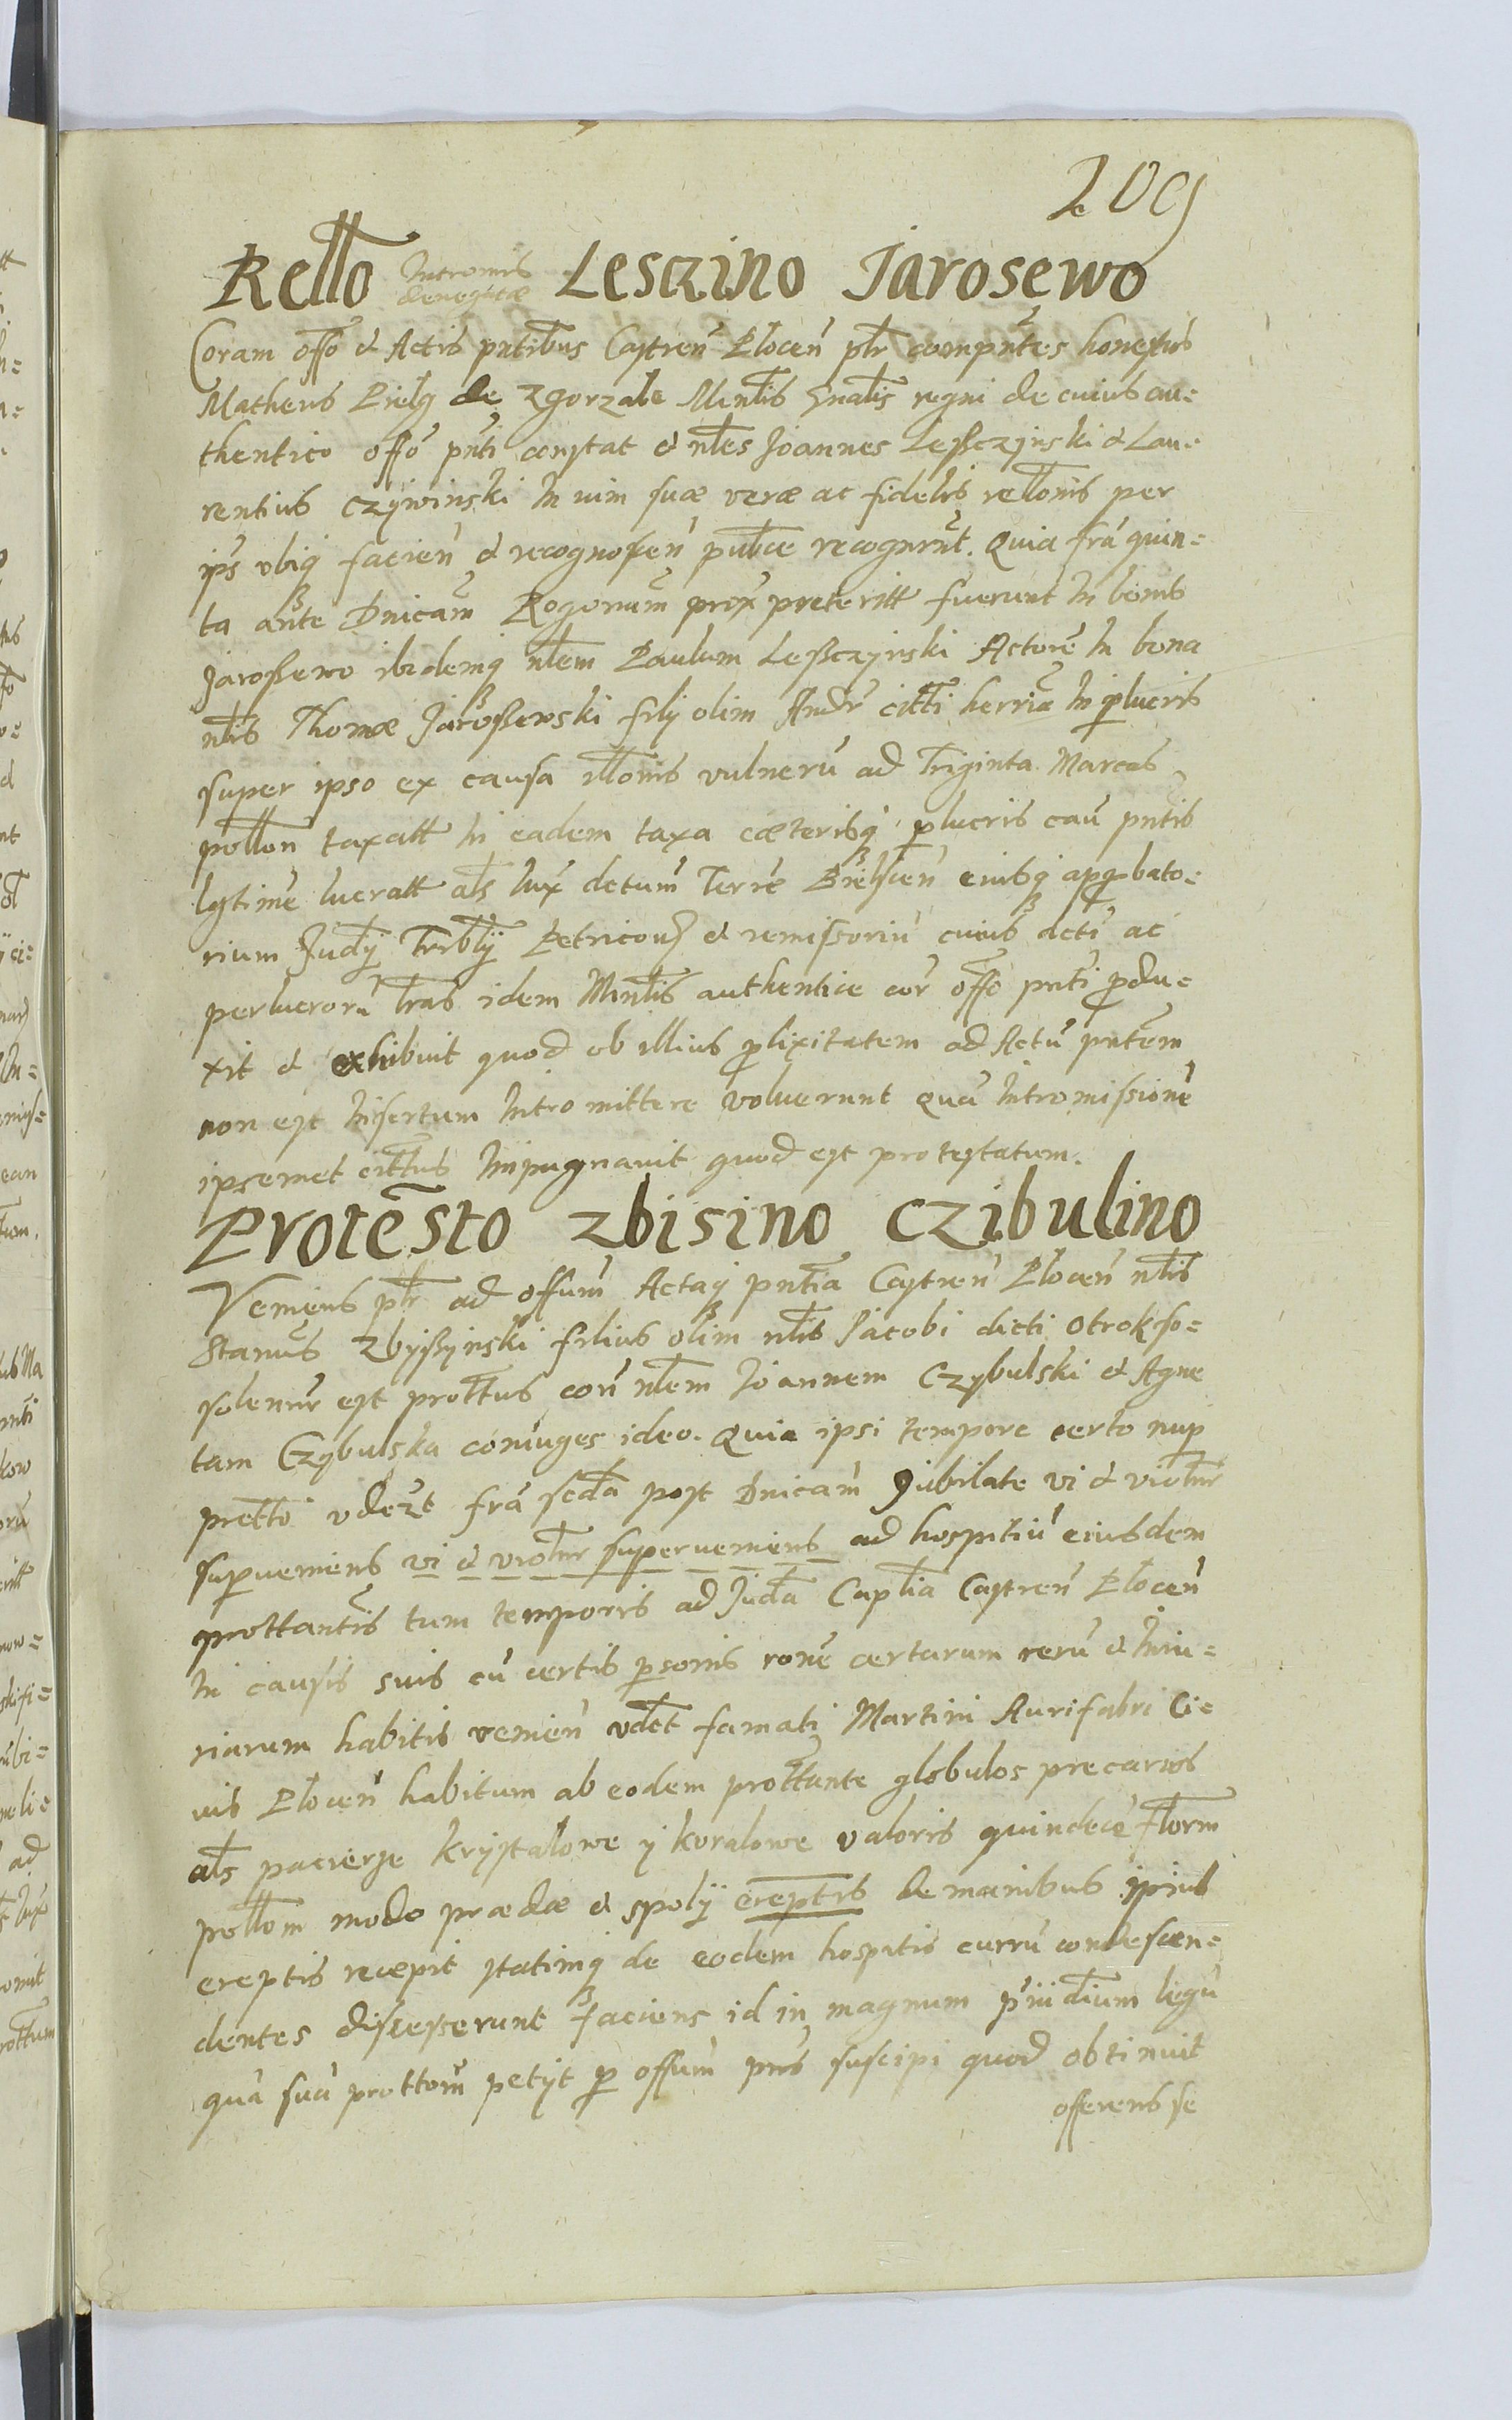 209
Rello Intromis denegatæ Lesczino Jarosewo
Coram offo et Actis pntibus Castren Plocen pltr comparentes honestus
Matheus Pielg de Zgorzale Minlis Gnalis regni de cuius au=
thentico offo pnti constat et nles Joannes Lessczynski et Lau=
rentius Czywinski In vim suæ veræ ac fidelis rellonis per
ips ubiq facien et recognoscen publce recognrnt. Quia fra quin=
ta ante Dnicam Rogonum prox preteritt fuerunt In bonis
Jarossewo ibidemq nlem Paulum Lessczynski Actore In bona
nlis Thomæ Jarossewski filij olim Andr citti herria In plucris
super ipso ex causa illonis vulneru ad Triginta Marcas
pollon taxatt In eadem taxa cæterisq plucris cau pntis
lgtime lucratt als lux detum Terre Bielscen eiusq approbato=
rium Judij Trblij Petricoun et remissoriu cuius dcti ac
perlucroru lras idem Minlis authentice cor offo pnti produ=
xit et exhibuit quod ob illius prolixitatem ad Actu pntem
non est Insertum Intromittere voluerunt qua Intromissione
ipsemet cittus Impugnavit quod est protestatum.
Protesto Zbisino Czibulino
Veniens pltr ad offum Actaq pntia Castren Plocen nlis
Stanus Zbyssynski filius olim nlis Jacobi dicti Otrok so=
solennr est prottus con nlem Joannem Czybulski et Agne
tam Czybulska coniuges ideo. Quia ipsi tempore certo nup
pretto vdezt fra scda post Dnicam Jubilate vi et violnr
superveniens vi et violnr superveniens ad hospitiu eiusdem
prottantis tum temporis ad Juda Caplia Castren Plocen
In causis suis cu certis personis rone certarum reru et Iniu=
riarum habitis venien vdet famati Martini Aurifabri Ci=
vis Plocen habitum ab eodem prottante globulos precarios
als pacierze krystalowe y koralowe valoris quindece florn
pollom modo prædæ et spolij ereptis de manibus ipius
ereptis recepit statimq de eodem hospitio curru condescen=
dentes discesserunt faciens id in magnum pniudium legu
qua sua prottom petijt p offum pns suscipi quod obtinuit
offerens se